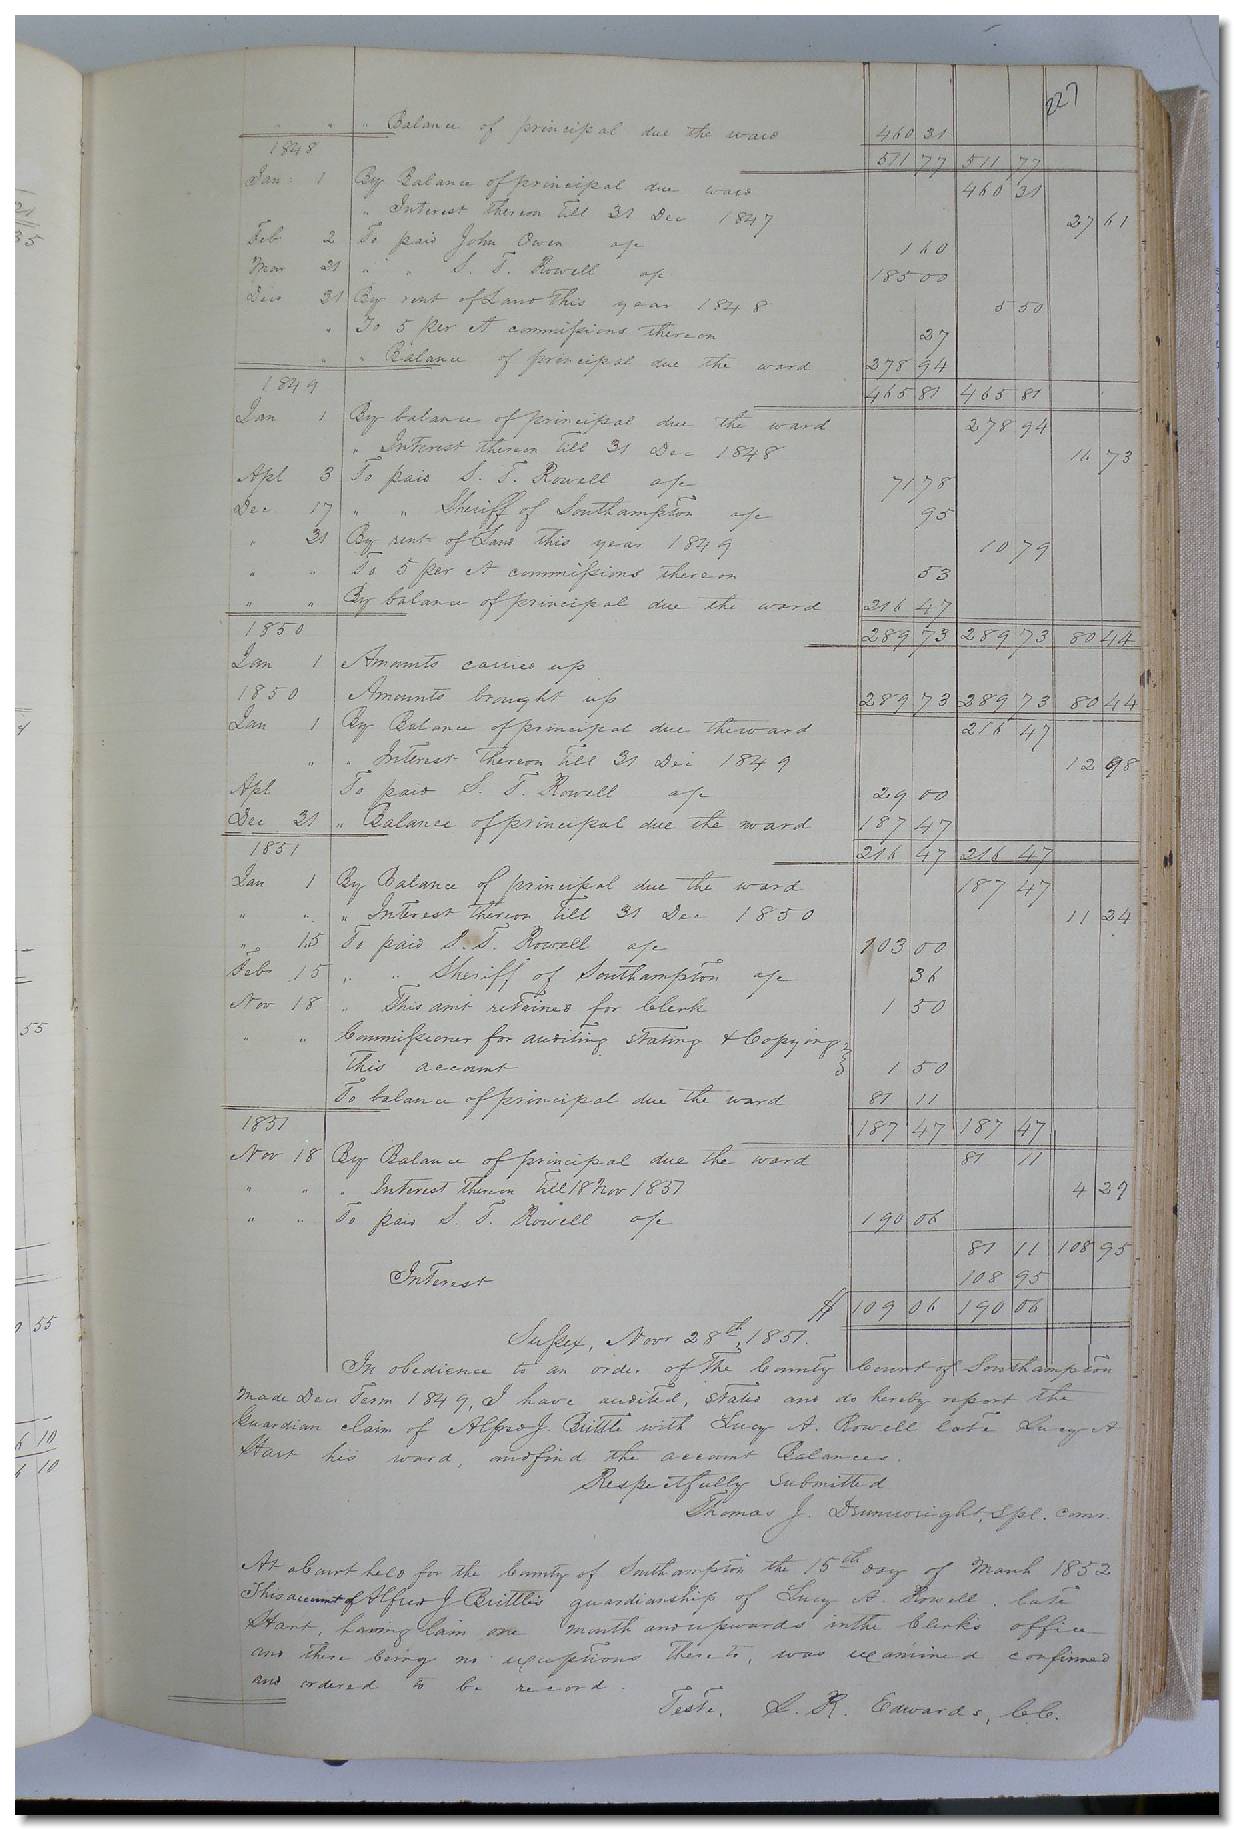 227
" " " Balance of principal due the ward 460 31
1848 511 77 511 77
Jan 1 By Balance of principal due ward 460 31
" Interest thereon till 31 Dec 1847 27 61
Feb 2 To paid John Owen a/c 1 60
Mar 21 " " S. T. Rowell a/c 185 00
Dec 31 By rent of Land this year 1848 5 50
" To 5 per ct commissions thereon 27
" " Balance of principal due the ward 278 94
1849 465 81 465 81
Jan 1 By balance of principal due the ward 278 94
" Interest thereon till 31 Dec 1848 16 73
Apl 3 To paid S. T. Rowell a/c 71 78
Dec 17 " " Sheriff of Southampton a/c 95
" 31 By rent of Land this year 1849 10 79
" " To 5 per ct commissions thereon 53
" " By balance of principal due the ward 216 47
1850 289 73 289 73 80 44
Jan 1 Amounts carried up
1850 Amounts brought up 289 73 289 73 80 44
Jan 1 By Balance of principal due the ward 216 47
" " Interest thereon till 31 Dec 1849 12 98
Apl To paid S. T. Rowell a/c 29 00
Dec 31 " Balance of principal due the ward 187 47
1851 216 47 216 47
Jan 1 By Balance of principal due the ward 187 47
" " " Interest thereon till 31 Dec 1850 11 24
" 15 To paid S. T. Rowell a/c 103 00
Feb 15 " " Sheriff of Southampton a/c 36
Nov 18 " This amt retained for Clerk 1 50
" " Commissioner for auditing stating & Copying
this account 1 50
To balance of principal due the ward 81 11
1851 187 47 187 47
Nov 18 By Balance of principal due the ward 81 11
" " " Interest thereon till 18 Nov 1851 4 29
" " To paid S. T. Rowell a/c 190 06
81 11 108 95
Interest 108 95
$ 109 06 190 06
Sussex, Novr 28th, 1851.
In obedience to an order of the County Court of Southampton
made Dec Term 1849, I have audited, stated and do hereby report the
Guardian claim of Alfred J. Brittle with Lucy A. Rowell late Lucy A
Hart his ward, and find the account Balances.
Respectfully submitted
Thomas J. Drumwright, Spl. comr.
At a Court held for the County of Southampton the 15th day of March 1852
This account of Alfred J Brittle's guardianship of Lucy A. Rowell, late
Hart, having lain one month and upwards in the Clerks office
and there being no exceptions thereto, was examined confirmed
and ordered to be record.
Teste, L. R. Edwards, C.C.
21
35
55
55
6 10
6 10